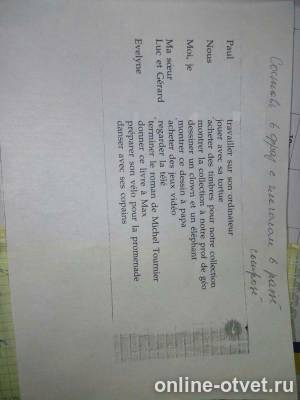 Составь 6 фраз с глаголом в
Paul
travailler sur son ordinateur
jouer avec sa tortue
Nous
acheter des timbres pour notre collection
montrer la collection à notre prof de géo
Moi, je
dessiner un clown et un éléphant
montrer ce dessin à papa
Ma sœur
acheter des jeux vidéo
Luc et Gérard
regarder la télé
terminer le roman de Michel Tournier
donner ce livre à Max
Evelyne
préparer son vélo pour la promenade
danser avec ses copains
online-otvet.ru